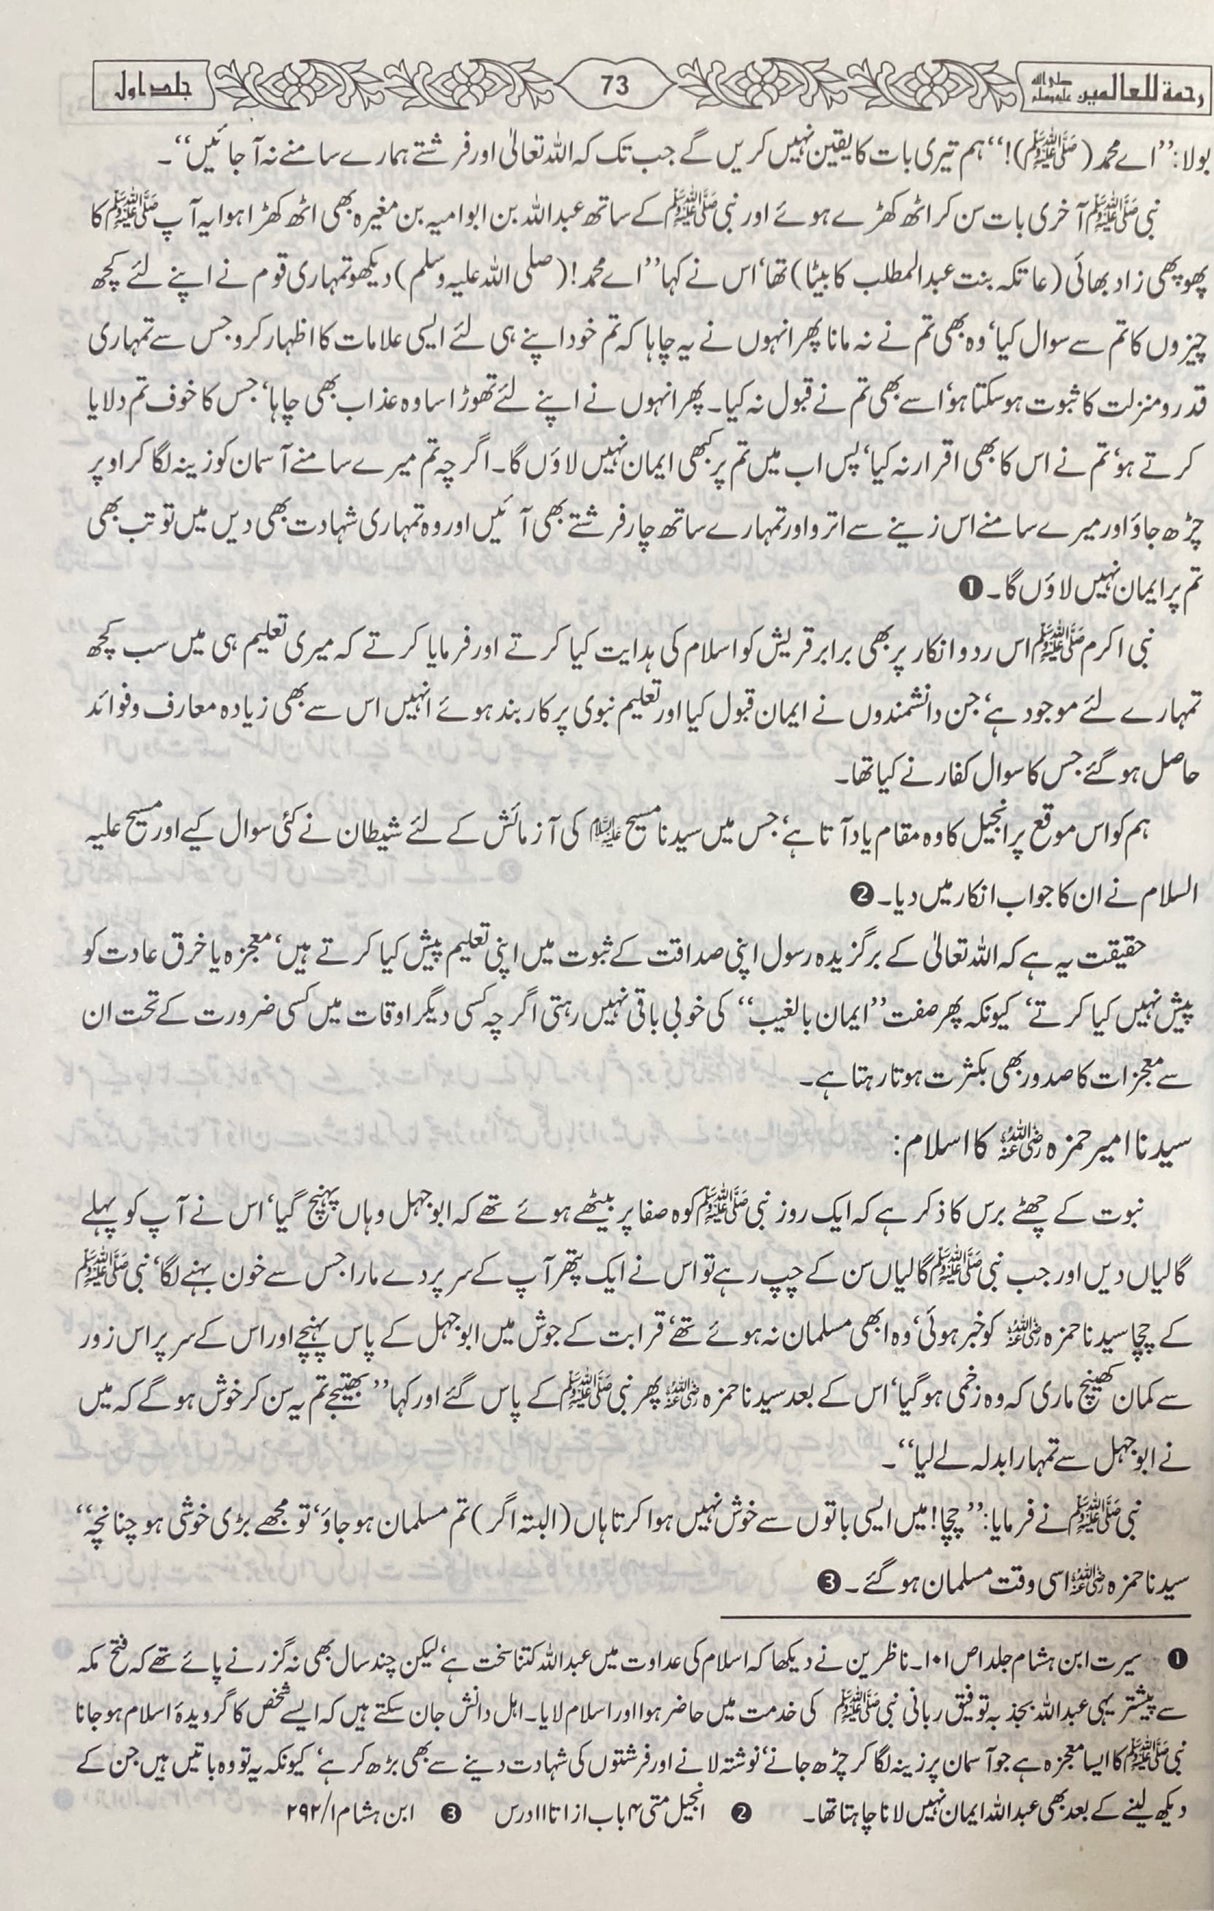 رحمة للعالمین صلی اللہ علیہ وسلم 73 جلد اول
بولا: ’’اے محمد (ﷺ)!‘‘ ہم تیری بات کا یقین نہیں کریں گے جب تک کہ اللہ تعالیٰ اور فرشتے ہمارے سامنے نہ آ جائیں‘‘۔
نبی ﷺ آخری بات سن کر اٹھ کھڑے ہوئے اور نبی ﷺ کے ساتھ عبداللہ بن ابوامیہ بن مغیرہ بھی اٹھ کھڑا ہوا یہ آپ ﷺ کا
پھوپھی زاد بھائی (عاتکہ بنت عبدالمطلب کا بیٹا) تھا‘ اس نے کہا ’’اے محمد! (صلی اللہ علیہ وسلم) دیکھو تمہاری قوم نے اپنے لئے کچھ
چیزوں کا تم سے سوال کیا‘ وہ بھی تم نے نہ مانا پھر انہوں نے یہ چاہا کہ تم خود اپنے ہی لئے ایسی علامات کا اظہار کرو جس سے تمہاری
قدرو منزلت کا ثبوت ہو سکتا ہو‘ اسے بھی تم نے قبول نہ کیا۔ پھر انہوں نے اپنے لئے تھوڑا سا وہ عذاب بھی چاہا‘ جس کا خوف تم دلایا
کرتے ہو‘ تم نے اس کا بھی اقرار نہ کیا‘ پس اب میں تم پر کبھی ایمان نہیں لاؤں گا۔ اگر چہ تم میرے سامنے آسمان کو زینہ لگا کر اوپر
چڑھ جاؤ اور میرے سامنے اس زینے سے اترو اور تمہارے ساتھ چار فرشتے بھی آئیں اور وہ تمہاری شہادت بھی دیں میں تو تب بھی
تم پر ایمان نہیں لاؤں گا۔ ❶
نبی اکرم ﷺ اس ردو انکار پر بھی برابر قریش کو اسلام کی ہدایت کیا کرتے اور فرمایا کرتے کہ میری تعلیم ہی میں سب کچھ
تمہارے لئے موجود ہے‘ جن دانشمندوں نے ایمان قبول کیا اور تعلیم نبوی پر کار بند ہوئے انہیں اس سے بھی زیادہ معارف و فوائد
حاصل ہو گئے جس کا سوال کفار نے کیا تھا۔
ہم کو اس موقع پر انجیل کا وہ مقام یاد آتا ہے‘ جس میں سیدنا مسیح علیہ السلام کی آزمائش کے لئے شیطان نے کئی سوال کیے اور مسیح علیہ
السلام نے ان کا جواب انکار میں دیا۔ ❷
حقیقت یہ ہے کہ اللہ تعالیٰ کے برگزیدہ رسول اپنی صداقت کے ثبوت میں اپنی تعلیم پیش کیا کرتے ہیں‘ معجزہ یا خرق عادت کو
پیش نہیں کیا کرتے‘ کیونکہ پھر صفت ’’ایمان بالغیب‘‘ کی خوبی باقی نہیں رہتی اگر چہ کسی دیگر اوقات میں کسی ضرورت کے تحت ان
سے معجزات کا صدور بھی بکثرت ہوتا رہتا ہے۔
سیدنا امیر حمزہ رضی اللہ عنہ کا اسلام:
نبوت کے چھٹے برس کا ذکر ہے کہ ایک روز نبی ﷺ کوہ صفا پر بیٹھے ہوئے تھے کہ ابوجہل وہاں پہنچ گیا‘ اس نے آپ کو پہلے
گالیاں دیں اور جب نبی ﷺ گالیاں سن کے چپ رہے تو اس نے ایک پتھر آپ کے سر پر دے مارا جس سے خون بہنے لگا‘ نبی ﷺ
کے چچا سیدنا حمزہ رضی اللہ عنہ کو خبر ہوئی‘ وہ ابھی مسلمان نہ ہوئے تھے‘ قرابت کے جوش میں ابوجہل کے پاس پہنچے اور اس کے سر پر اس زور
سے کمان کھینچ ماری کہ وہ زخمی ہو گیا‘ اس کے بعد سیدنا حمزہ رضی اللہ عنہ پھر نبی ﷺ کے پاس گئے اور کہا ’’بھتیجے تم یہ سن کر خوش ہو گے کہ میں
نے ابوجہل سے تمہارا بدلہ لے لیا‘‘۔
نبی ﷺ نے فرمایا: ’’چچا! میں ایسی باتوں سے خوش نہیں ہوا کرتا ہاں (البتہ اگر) تم مسلمان ہو جاؤ‘ تو مجھے بڑی خوشی ہو چنانچہ‘‘
سیدنا حمزہ رضی اللہ عنہ اسی وقت مسلمان ہو گئے۔ ❸
❶ سیرت ابن ہشام جلد ا ص ۱۰۱۔ ناظرین نے دیکھا کہ اسلام کی عداوت میں عبداللہ کتنا سخت ہے‘ لیکن چند سال بھی نہ گزرنے پائے تھے کہ فتح مکہ
سے پیشتر یہی عبداللہ بجذبہ توفیق ربانی نبی ﷺ کی خدمت میں حاضر ہوا اور اسلام لایا۔ اہل دانش جان سکتے ہیں کہ ایسے شخص کا گرویدۂ اسلام ہو جانا
نبی ﷺ کا ایسا معجزہ ہے جو آسمان پر زینہ لگا کر چڑھ جانے‘ نوشتہ لانے اور فرشتوں کی شہادت دینے سے بھی بڑھ کر ہے‘ کیونکہ یہ تو وہ باتیں ہیں جن کے
دیکھ لینے کے بعد بھی عبداللہ ایمان نہیں لانا چاہتا تھا۔ ❷ انجیل متی ۴ باب از ۱ تا ۱۱ درس ❸ ابن ہشام ۱/۲۹۲